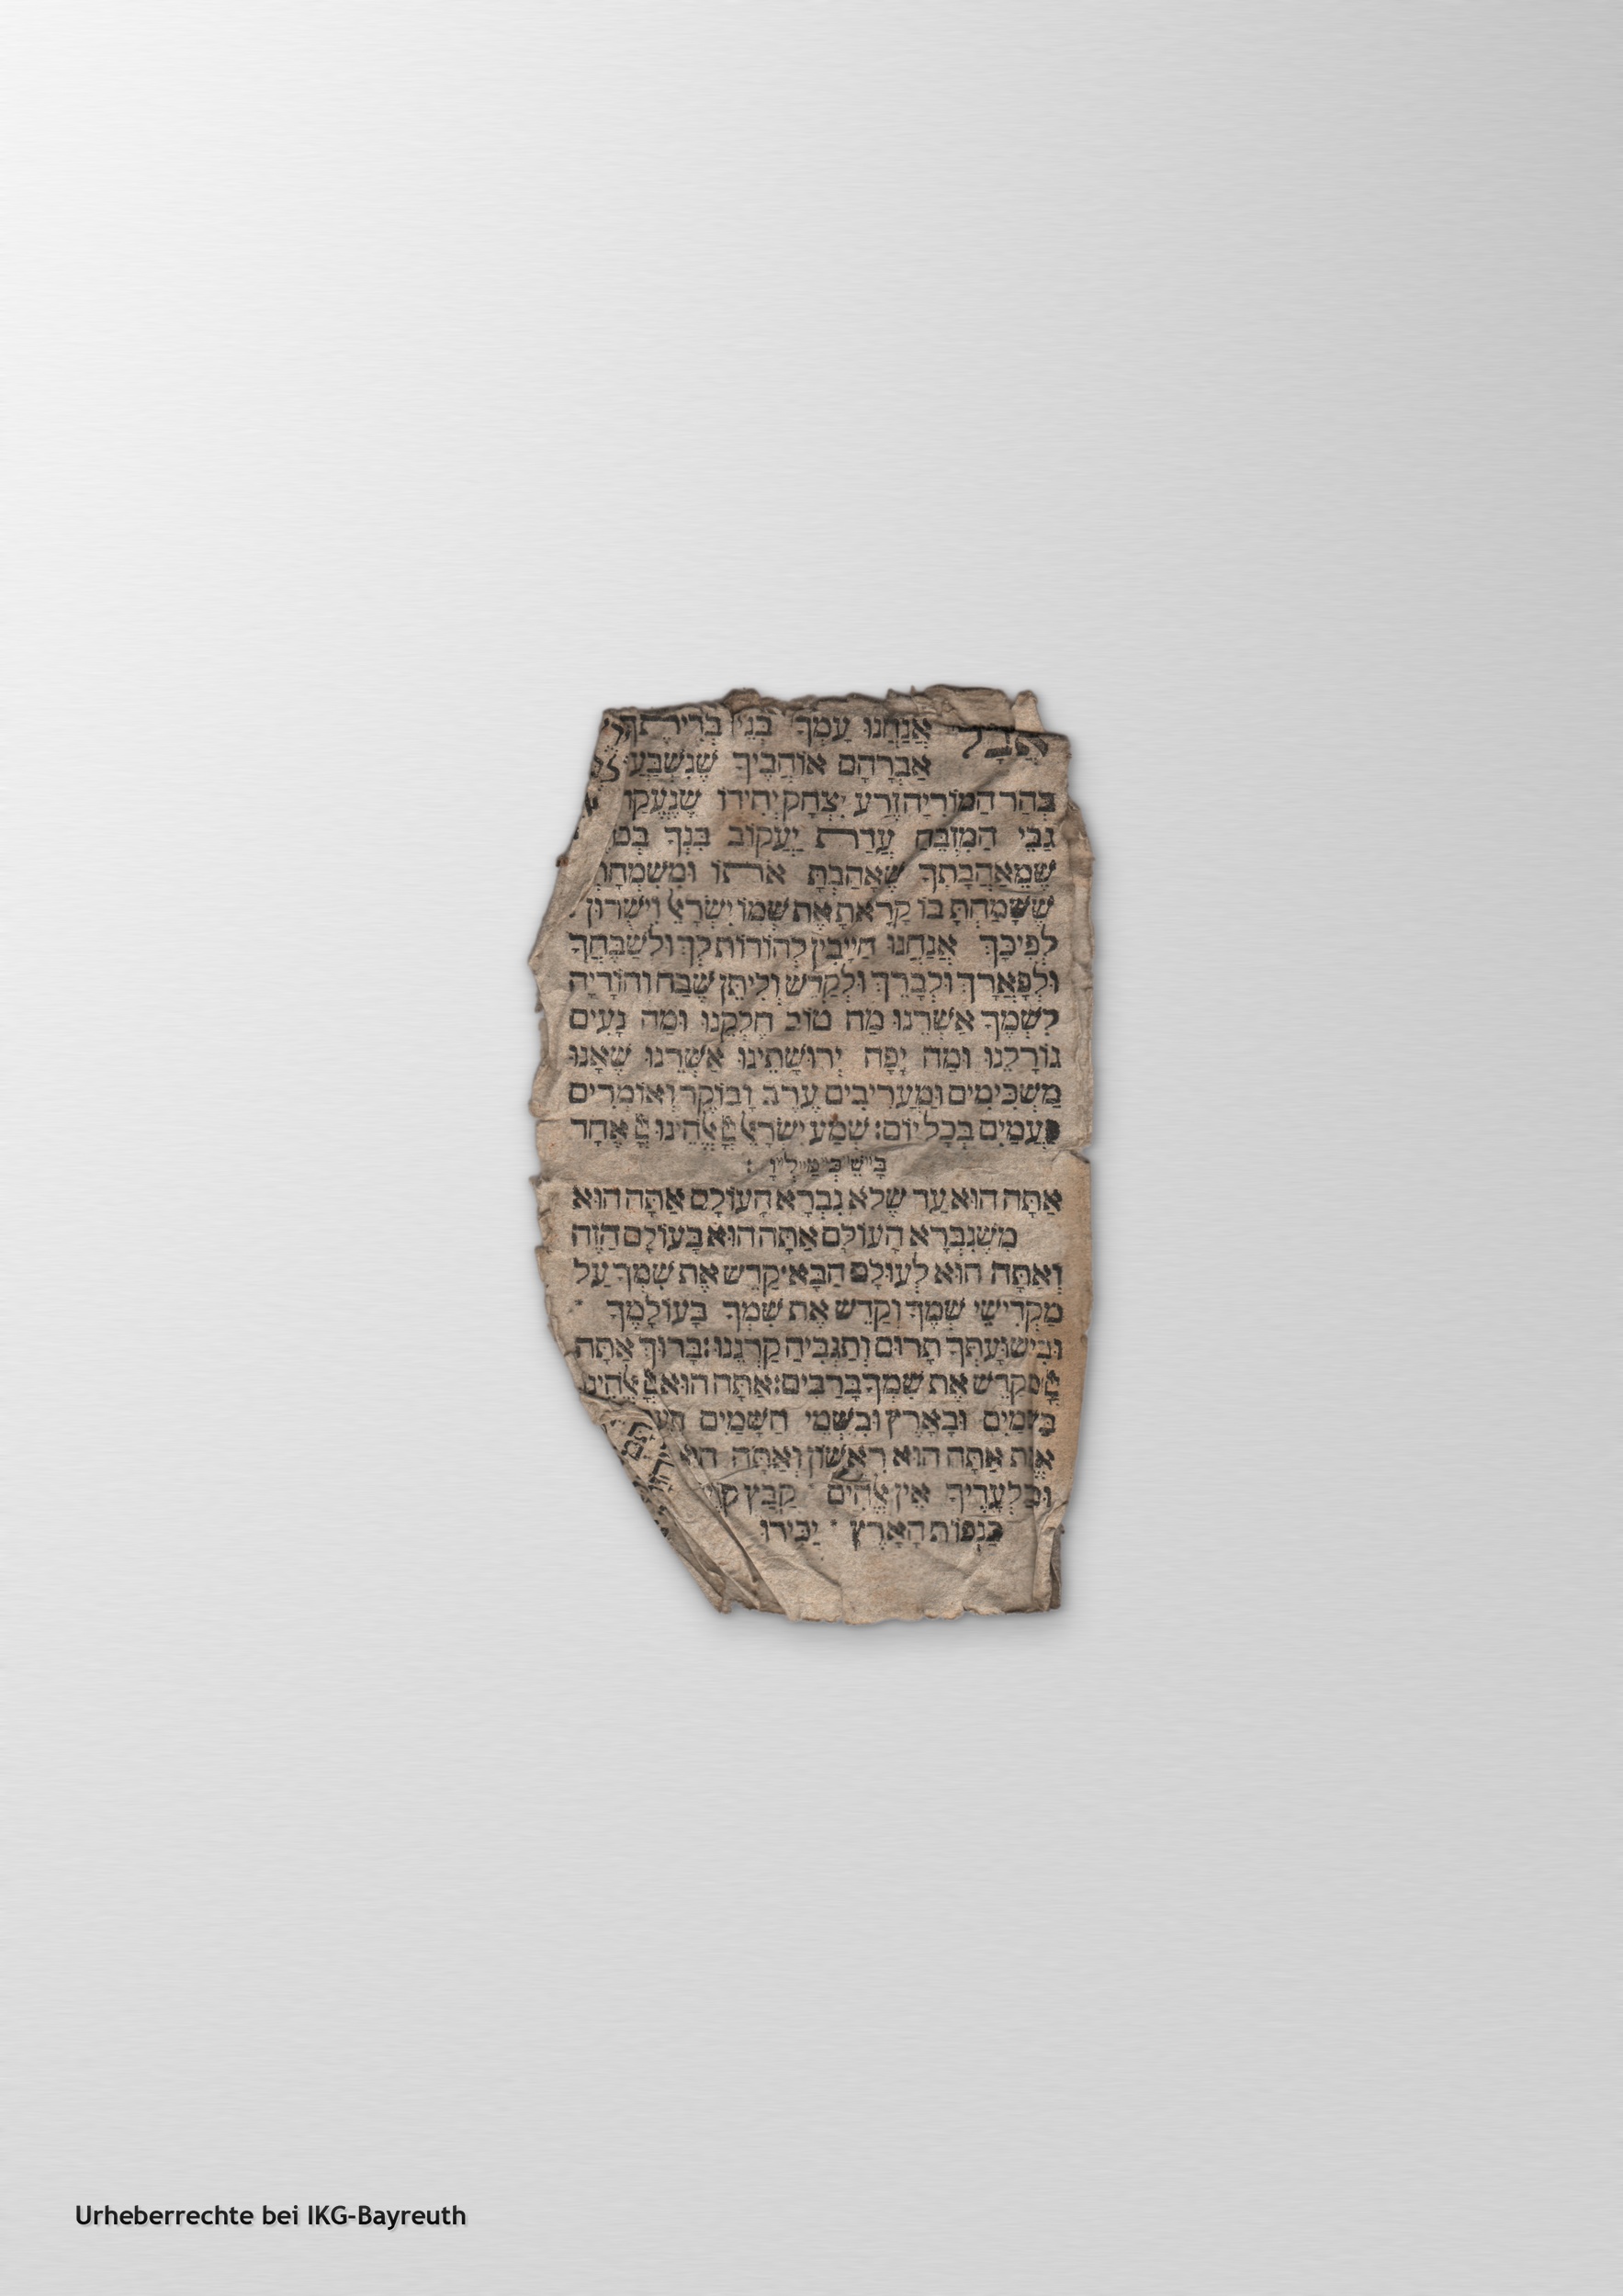 אֲבָל אֲנַחְנוּ עַמְּךָ בְּנֵי בְרִיתֶךָ
אַבְרָהָם אוֹהֲבֶיךָ שֶׁנִּשְׁבַּעְ
בְּהַר הַמּוֹרִיָה זֶרַע יִצְחָק יְחִידוֹ שֶׁנֶּעֱקַד
גַבֵּי הַמִּזְבֵּחַ עֲדַת יַעֲקוֹב בִּנְךָ
שֶׁמֵּאַהֲבָתְךָ שֶׁאָהַבְתָּ אותוֹ וּמִשִּׂמְחָתְ
שֶׁשָּׂמַחְתָּ בּוֹ קָרָאתָ אֶת שְׁמוֹ יִשְׂרָאֵל וִישֻׁרוּן׃
לְפִיכָךְ אֲנַחְנוּ חַיָּיבִין לְהוֹדוֹת לְךָ וּלְשַׁבֵּחֲךָ
וּלְפָאֲרָךְ וּלְבָרֵךְ וּלְקַדֵּשׁ וְלִיתֵּן שֶׁבַח וְהוֹדָיָה
לִשְׁמֶךָ אַשְׁרֵנוּ מַה טּוֹב חֶלְקֵנוּ וּמַה נָּעִים
גּוֹרָלֵנוּ וּמַה יָּפָה יְרוּשָׁתֵינוּ אַשְׁרֵנוּ שֶׁאָנוּ
מַשְׁכִּימִים וּמַעֲרִיבִים עֶרֶב וָבוֹקֶר וְאוֹמְרִים
פַּעֲמַיִם בְּכָל יוֹם׃ שְׁמַע יִשְׂרָאֵל יְיָ אֱלֹהֵינוּ יְיָ אֶחָד
בָּ״שֵׁ״כְּ״מַ״לְ״וָ׃
אַתָּה הוּא עַד שֶׁלֹּא נִבְרָא הָעוֹלָם אַתָּה הוּא
מִשֶּׁנִּבְרָא הָעוֹלָם אַתָּה הוּא בָּעוֹלָם הַזֶּה
וְאַתָּה הוּא לְעוֹלָם הַבָּא׳ קַדֵּשׁ אֶת שִׁמְךָ עַל
מַקְדִּישֵׁי שְׁמֶךָ וְקַדֵּשׁ אֶת שִׁמְךָ בָּעוֹלָמֶךָ
וּבִישׁוּעָתְךָ תָּרוּם וְתַגְבִּיהַּ קַרְנֵנוּ׃ בָּרוּךְ אַתָּה
יְיָ מְקַדֵּשׁ אֶת שִׁמְךָ בָּרַבִּים׃ אַתָּה הוּא יְיָ אֱלֹהֵינוּ
בַּשָּׁמַיִם וּבָאָרֶץ וּבִשְׁמֵי הַשָּׁמַיִם
אֱמֶת אַתָּה הוּא רִאשׁוֹן וְאַתָּה הוּא
וּבִלְעָדֶיךָ אֵין אֱלֹהִים קַבֵּץ
כַּנְפוֹת הָאָרֶץ׳ יַכִּירוּ
Urheberrechte bei IKG-Bayreuth